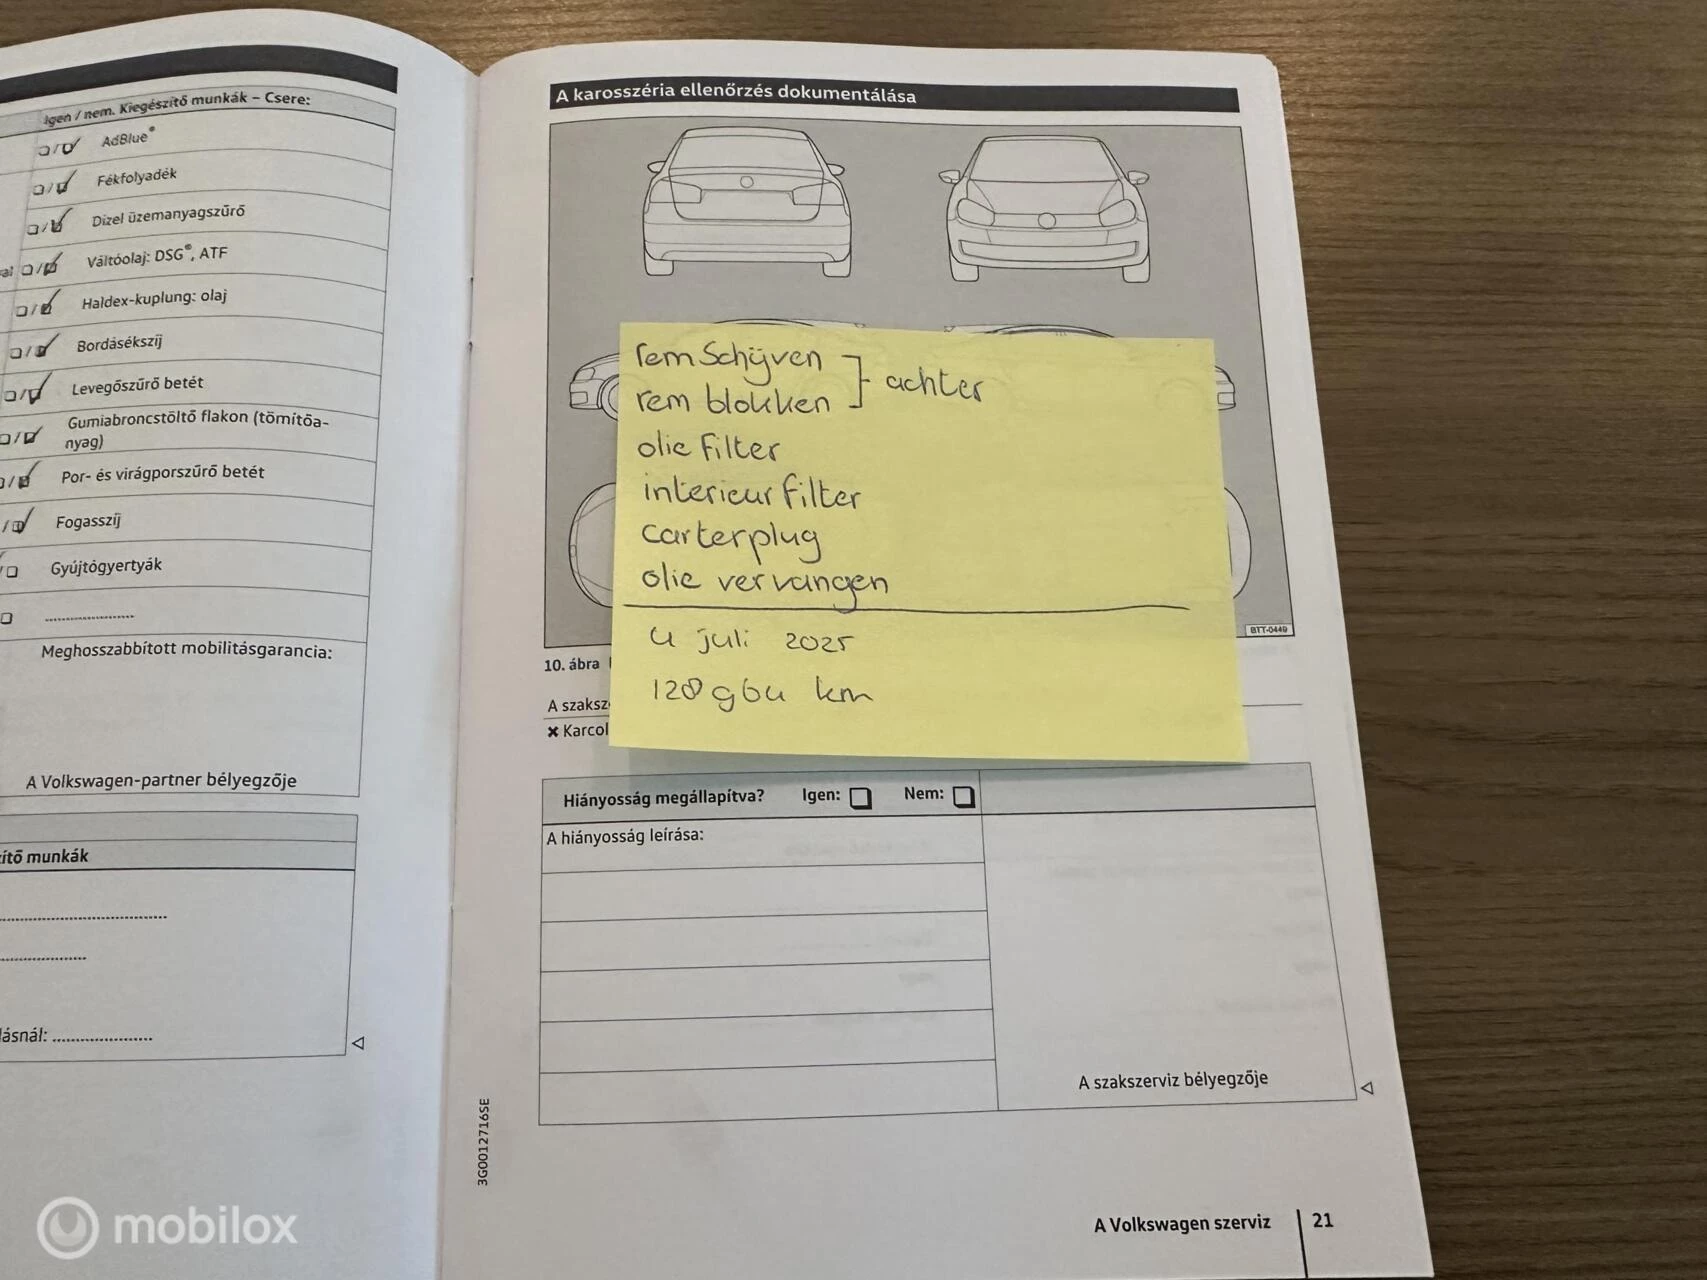 Igen / nem. Kiegészítő munkák – Csere:
AdBlue®
Fékfolyadék
Dízel üzemanyagszűrő
Váltóolaj: DSG®, ATF
Haldex-kuplung: olaj
Bordásékszíj
Levegőszűrő betét
Gumiabroncstöltő flakon (tömítőa-
nyag)
Por- és virágporszűrő betét
Fogasszíj
Gyújtógyertyák
Meghosszabbított mobilitásgarancia:
A Volkswagen-partner bélyegzője
ítő munkák
lásnál:
A karosszéria ellenőrzés dokumentálása
rem schijven
rem blokken
achter
olie filter
interieur filter
carterplug
olie vervangen
4 juli 2025
128964 km
BTT-0449
10. ábra
A szaksz
✖ Karcol
Hiányosság megállapítva? Igen: Nem:
A hiányosság leírása:
A szakszerviz bélyegzője
3G0012716SE
A Volkswagen szerviz 21
mobilox